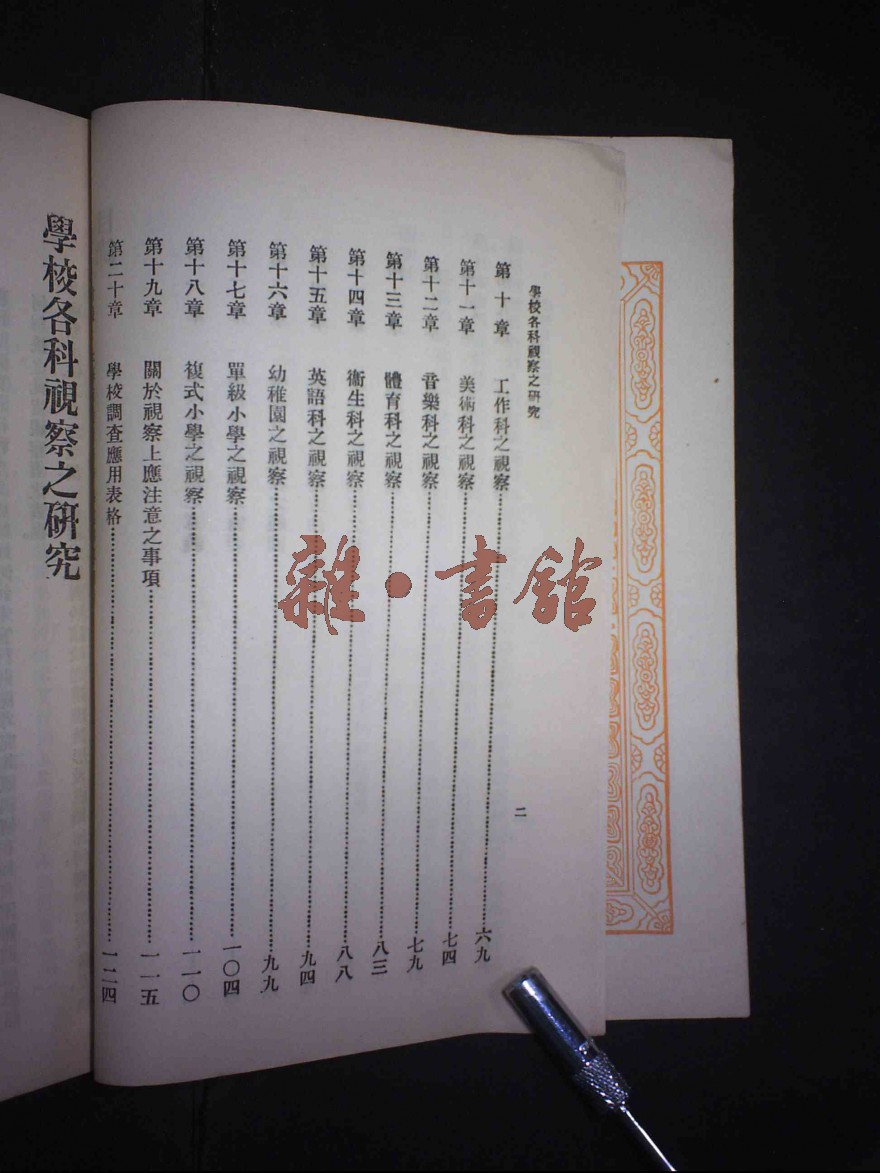 學校各科視察之研究
二
第十章 工作科之視察 六九
第十一章 美術科之視察 七四
第十二章 音樂科之視察 七九
第十三章 體育科之視察 八三
第十四章 衞生科之視察 八八
第十五章 英語科之視察 九四
第十六章 幼稚園之視察 九九
第十七章 單級小學之視察 一〇四
第十八章 複式小學之視察 一一〇
第十九章 關於視察上應注意之事項 一一五
第二十章 學校調查應用表格 一二四
學校各科視察之研究
雜·書館